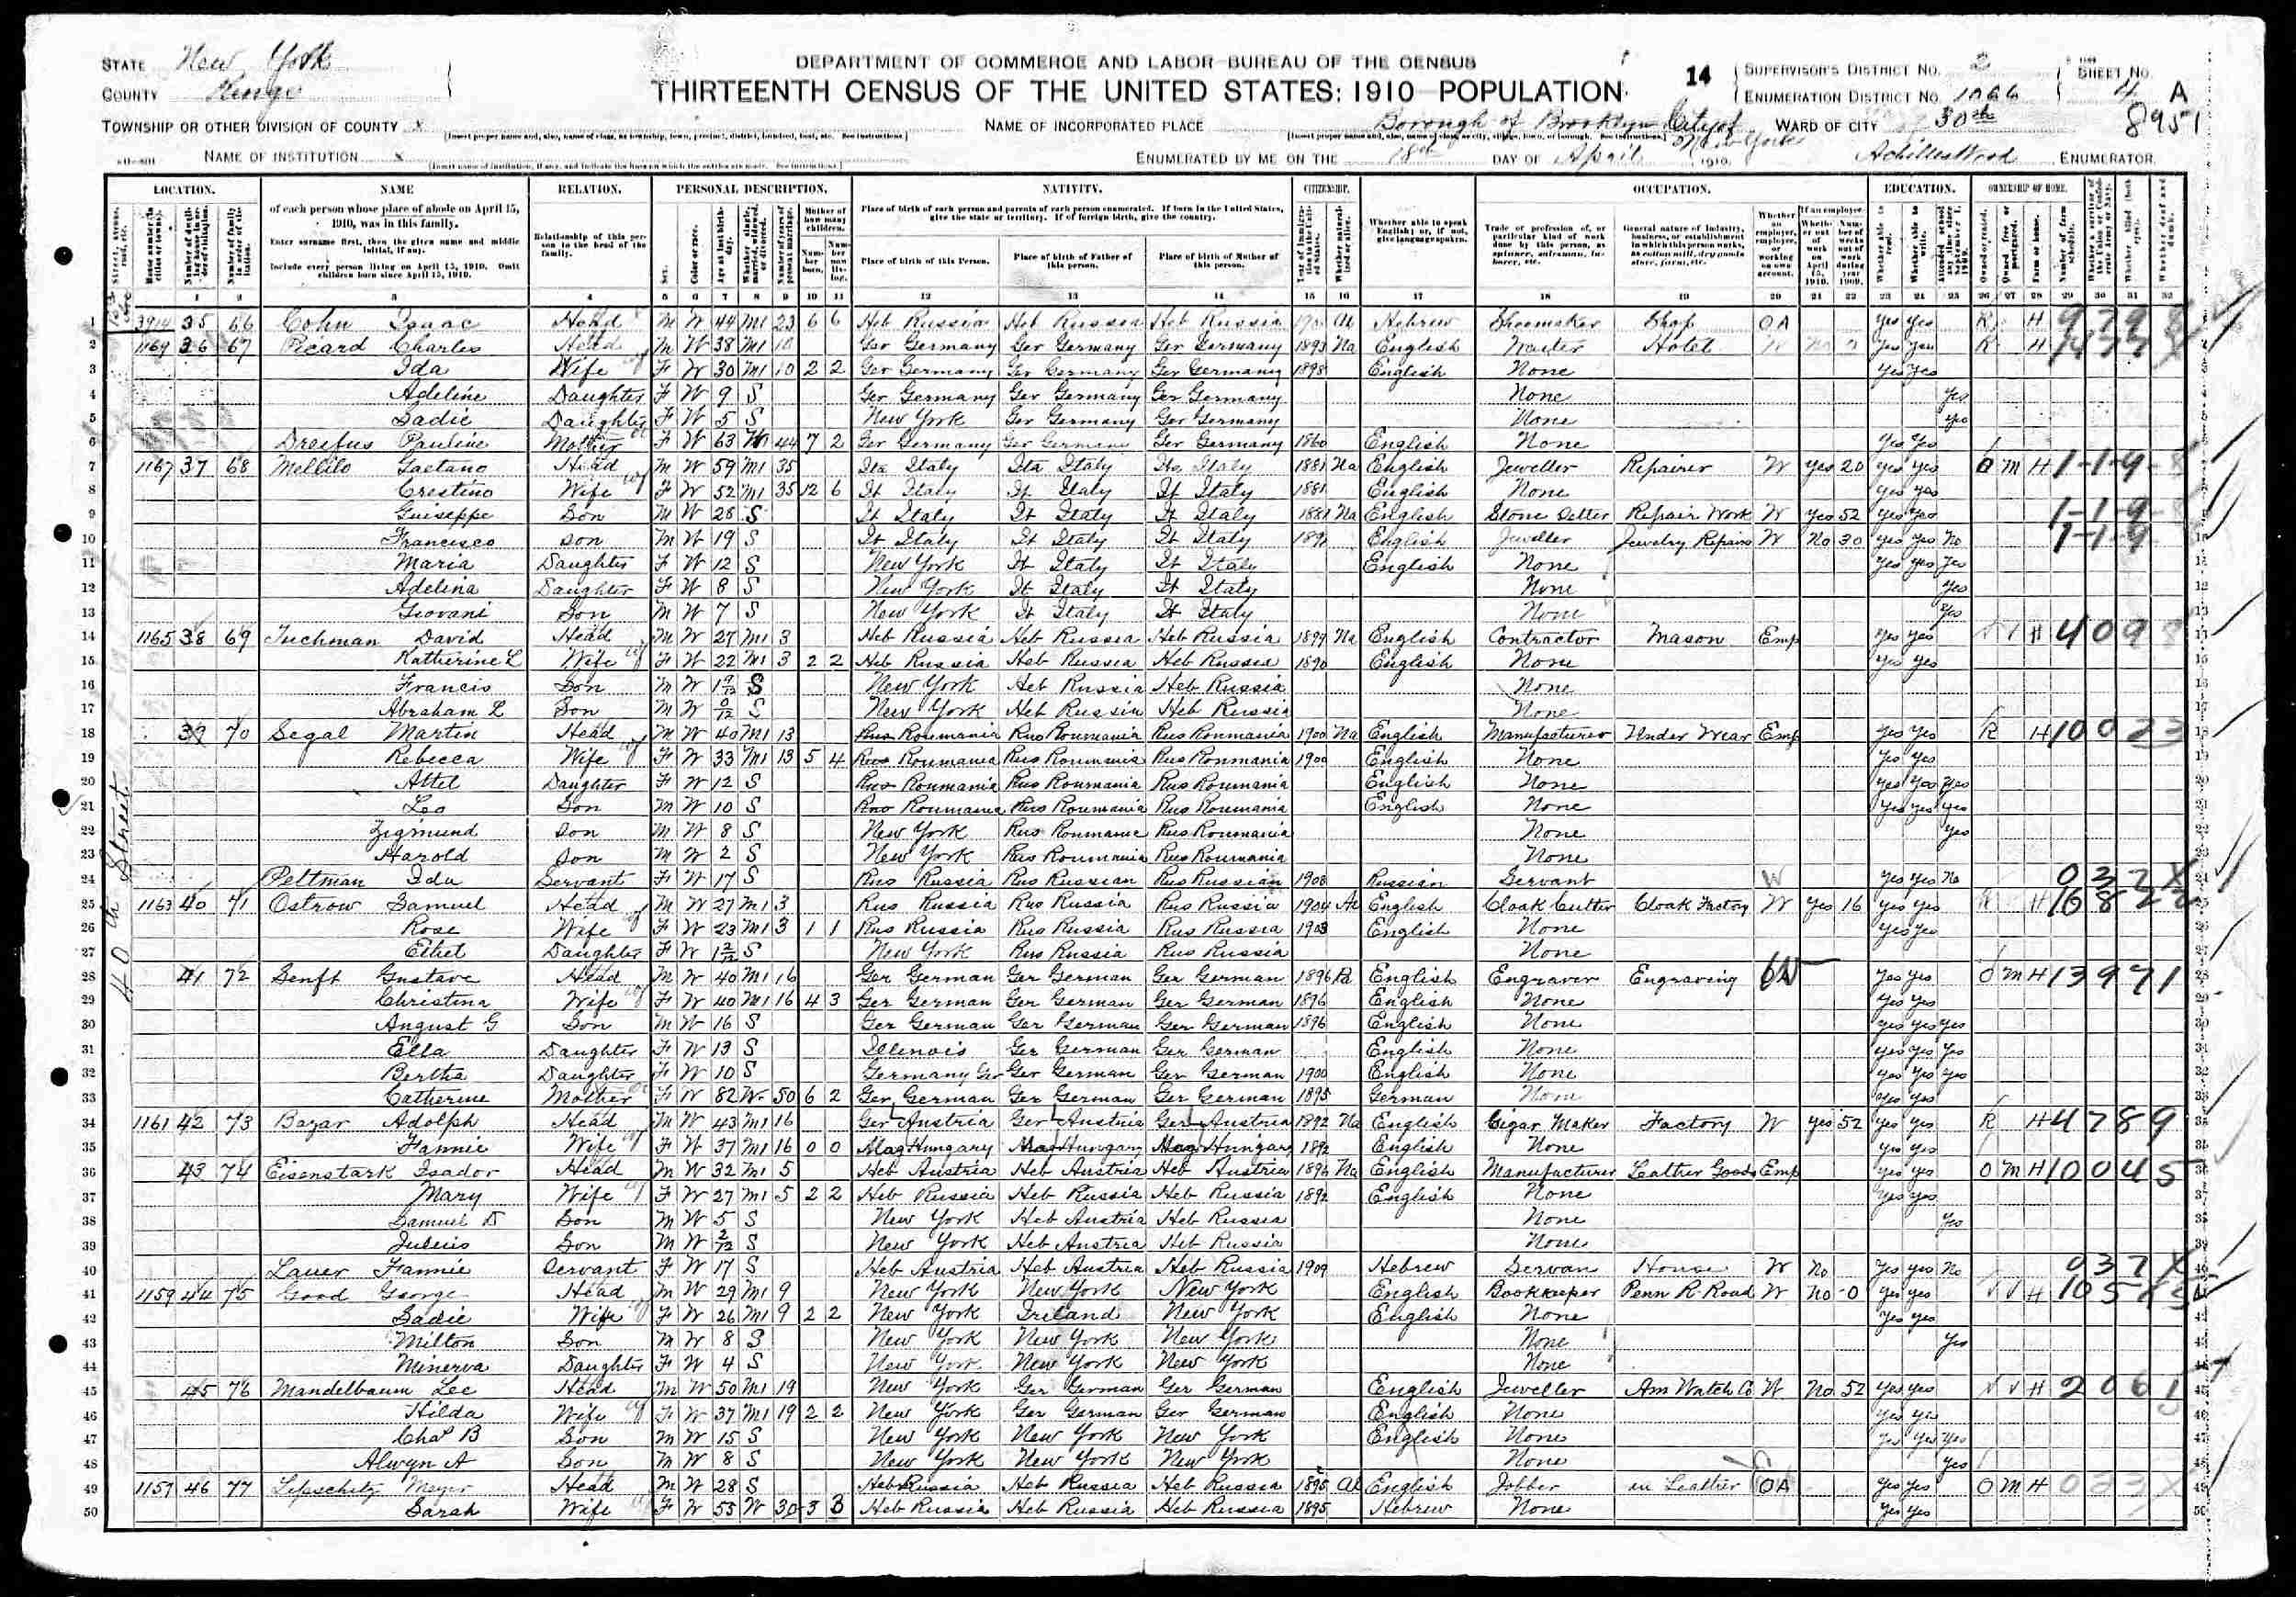 STATE New York
COUNTY Kings
TOWNSHIP OR OTHER DIVISION OF COUNTY x
NAME OF INSTITUTION x
DEPARTMENT OF COMMERCE AND LABOR-BUREAU OF THE CENSUS
THIRTEENTH CENSUS OF THE UNITED STATES: 1910 POPULATION
NAME OF INCORPORATED PLACE Borough of Brooklyn City of New York
ENUMERATED BY ME ON THE 18th DAY OF April 1910.
14 SUPERVISOR'S DISTRICT NO. 2 SHEET NO. 4 A
ENUMERATION DISTRICT NO. 1066
WARD OF CITY 30th 8951
ENUMERATOR.
LOCATION. NAME RELATION. PERSONAL DESCRIPTION. NATIVITY. CITIZENSHIP. OCCUPATION. EDUCATION. OWNERSHIP OF HOME.
of each person whose place of abode on April 15, 1910, was in this family.
Enter surname first, then the given name and middle initial, if any.
Include every person living on April 15, 1910. Omit children born since April 15, 1910.
Relationship of this person to the head of the family.
Place of birth of each person and parents of each person enumerated. If born in the United States, give the state or territory. If of foreign birth, give the country.
Place of birth of this Person. Place of birth of Father of this person. Place of birth of Mother of this person.
Whether able to speak English; or, if not, give language spoken.
40 th Street
1 3914 35 66 Cohn Isaac Head M W 44 M1 23 6 6 Heb Russia Heb Russia Heb Russia Al Hebrew Shoemaker Shop OA yes yes R H
2 1169 36 67 Picard Charles Head M W 38 M1 10 Ger Germany Ger Germany Ger Germany 1893 Na English Waiter Hotel W yes yes R H
3 Ida Wife F W 30 M1 10 2 2 Ger Germany Ger Germany Ger Germany 1898 English None yes yes
4 Adeline Daughter F W 9 S Ger Germany Ger Germany Ger Germany None yes
5 Sadie Daughter F W 5 S New York Ger Germany Ger Germany None yes
6 Dreifus Pauline Mother F W 63 44 7 2 Ger Germany Ger Germany Ger Germany 1860 English None yes yes
7 1167 37 68 Mellilo Gaetano Head M W 59 M1 35 Ita Italy Ita Italy Ita Italy 1881 Na English Jeweller Repairer W yes 20 yes yes O M H 1-1-9-8
8 Crestino Wife F W 52 M1 35 12 6 It Italy It Italy It Italy 1881 English None yes yes
9 Guiseppe Son M W 28 S It Italy It Italy It Italy 1881 Na English Stone Setter Repair Work W yes 52 yes yes 1-1-9-8
10 Francisco Son M W 19 S It Italy It Italy It Italy English Jeweller Jewelry Repairs W No 30 yes yes No 1-1-9
11 Maria Daughter F W 12 S New York It Italy It Italy English None yes yes yes
12 Adelina Daughter F W 8 S New York It Italy It Italy None yes
13 Giovani Son M W 7 S New York It Italy It Italy None yes
14 1165 38 69 Tuchman David Head M W 27 M1 3 Heb Russia Heb Russia Heb Russia 1899 Na English Contractor Mason Emp yes yes H 4098
15 Katherine L Wife F W 22 M1 3 2 2 Heb Russia Heb Russia Heb Russia 1890 English None yes yes
16 Francis Son M W 1 9/12 S New York Heb Russia Heb Russia None
17 Abraham L Son M W 0/12 S New York Heb Russia Heb Russia None
18 39 70 Segal Martin Head M W 40 M1 13 Rus Roumania Rus Roumania Rus Roumania 1900 Na English Manufacturer Under Wear Emp yes yes R H 10023
19 Rebecca Wife F W 33 M1 13 5 4 Rus Roumania Rus Roumania Rus Roumania 1900 English None yes yes
20 Attel Daughter F W 12 S Rus Roumania Rus Roumania Rus Roumania English None yes yes yes
21 Leo Son M W 10 S Rus Roumania Rus Roumania Rus Roumania English None yes yes yes
22 Zigmund Son M W 8 S New York Rus Roumania Rus Roumania None yes
23 Harold Son M W 2 S New York Rus Roumania Rus Roumania None
24 Peltman Ida Servant F W 17 S Rus Russia Rus Russian Rus Russian 1908 Russian Servant W yes yes No 037X
25 1163 40 71 Ostrow Samuel Head M W 27 M1 3 Rus Russia Rus Russia Rus Russia 1904 Al English Cloak Cutter Cloak Factory W yes 16 yes yes R H 16822
26 Rose Wife F W 23 M1 3 1 1 Rus Russia Rus Russia Rus Russia 1903 English None yes yes
27 Ethel Daughter F W 1 2/12 S New York Rus Russia Rus Russia None
28 41 72 Senft Gustave Head M W 40 M1 16 Ger German Ger German Ger German 1896 Pa English Engraver Engraving yes yes O M H 13971
29 Christina Wife F W 40 M1 16 4 3 Ger German Ger German Ger German 1896 English None yes yes
30 August G Son M W 16 S Ger German Ger German Ger German 1896 English None yes yes yes
31 Ella Daughter F W 13 S Illinois Ger German Ger German English None yes yes yes
32 Bertha Daughter F W 10 S Germany Ger Ger German Ger German 1900 English None yes yes yes
33 Catherine Mother F W 82 W 50 6 2 Ger German Ger German Ger German 1895 German None yes yes
34 1161 42 73 Bazar Adolph Head M W 43 M1 16 Ger Austria Ger Austria Ger Austria 1892 Na English Cigar Maker Factory W yes 52 yes yes R H 4789
35 Fannie Wife F W 37 M1 16 0 0 Mag Hungary Mag Hungary Mag Hungary 1892 English None yes yes
36 43 74 Eisenstark Isador Head M W 32 M1 5 Heb Austria Heb Austria Heb Austria 1896 Na English Manufacturer Leather Goods Emp yes yes O M H 10045
37 Mary Wife F W 27 M1 5 2 2 Heb Russia Heb Russia Heb Russia 1892 English None yes yes
38 Samuel D Son M W 5 S New York Heb Austria Heb Russia None yes
39 Julius Son M W 2/12 S New York Heb Austria Heb Russia None
40 Lauer Fannie Servant F W 17 S Heb Austria Heb Austria Heb Russia 1909 Hebrew Servan House W No yes yes No 037X
41 1159 44 75 Good George Head M W 29 M1 9 New York New York New York English Bookkeeper Penn R. Road W No 0 yes yes H
42 Sadie Wife F W 26 M1 9 2 2 New York Ireland New York English None yes yes
43 Milton Son M W 8 S New York New York New York None yes
44 Minerva Daughter F W 4 S New York New York New York None
45 45 76 Mandelbaum Lee Head M W 50 M1 19 New York Ger German Ger German English Jeweller Am Watch Co W No 52 yes yes H
46 Hilda Wife F W 37 M1 19 2 2 New York Ger German Ger German English None yes yes
47 Chas B Son M W 15 S New York New York New York English None yes yes yes
48 Alwyn A Son M W 8 S New York New York New York None yes
49 1157 46 77 Lipschitz Meyer Head M W 28 S Heb Russia Heb Russia Heb Russia 1895 Al English Jobber in Leather OA yes yes O M H 033X
50 Sarah Wife F W 53 W 30 3 3 Heb Russia Heb Russia Heb Russia 1895 Hebrew None yes yes